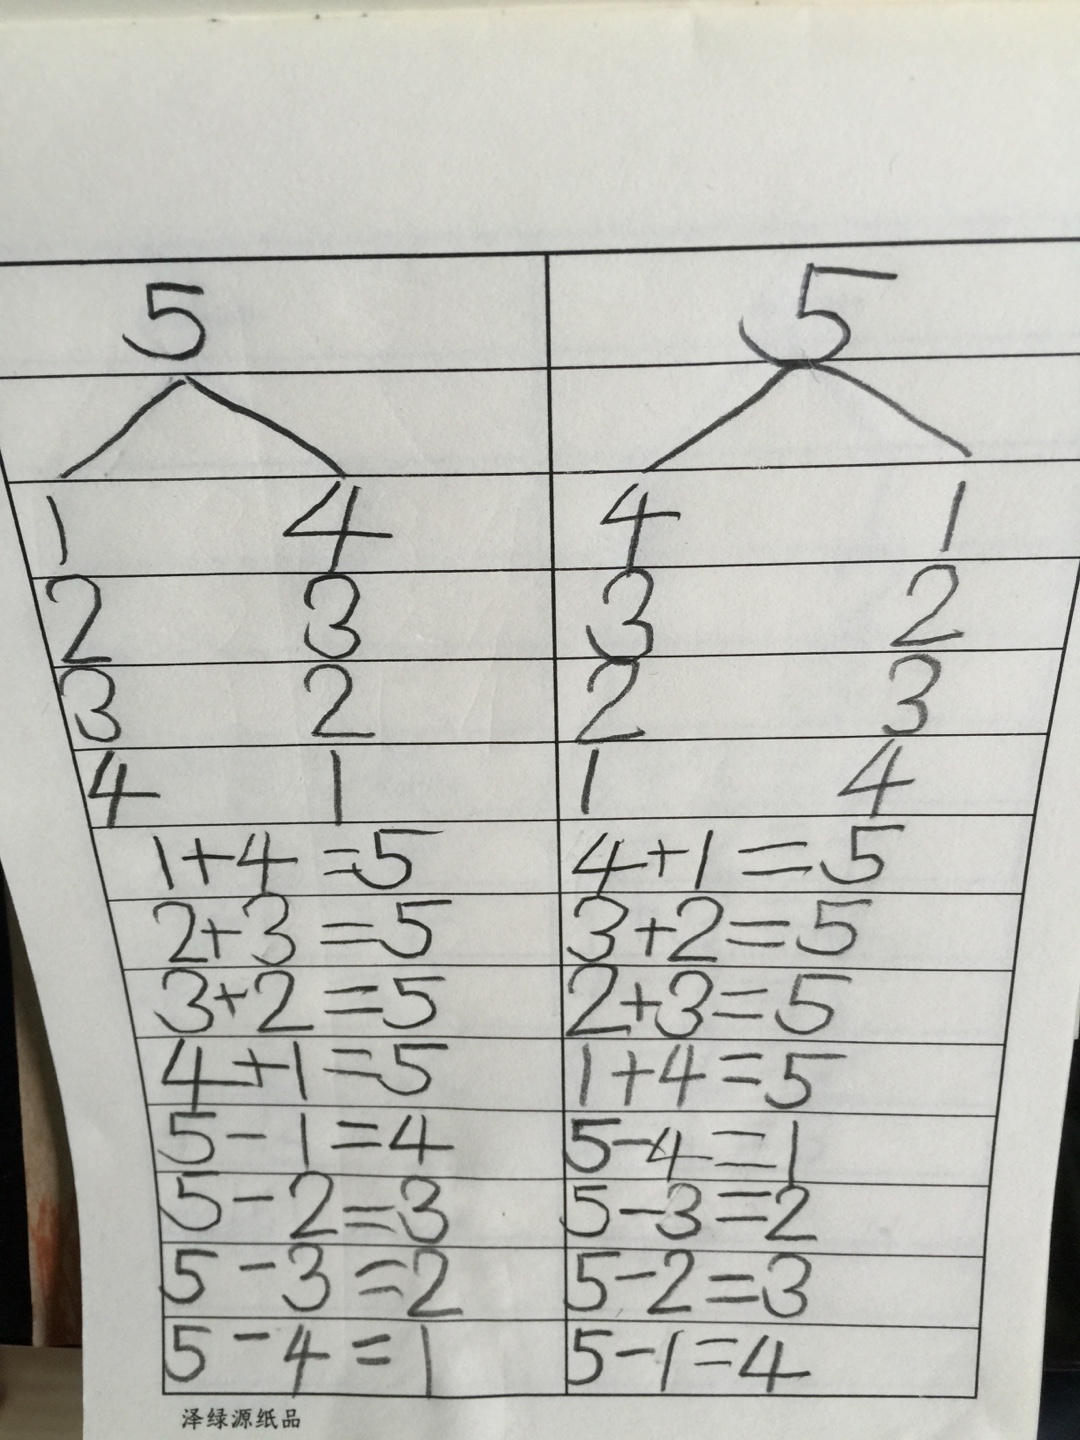 5 5
1 4 4 1
2 3 3 2
3 2 2 3
4 1 1 4
1+4=5 4+1=5
2+3=5 3+2=5
3+2=5 2+3=5
4+1=5 1+4=5
5-1=4 5-4=1
5-2=3 5-3=2
5-3=2 5-2=3
5-4=1 5-1=4
泽绿源纸品